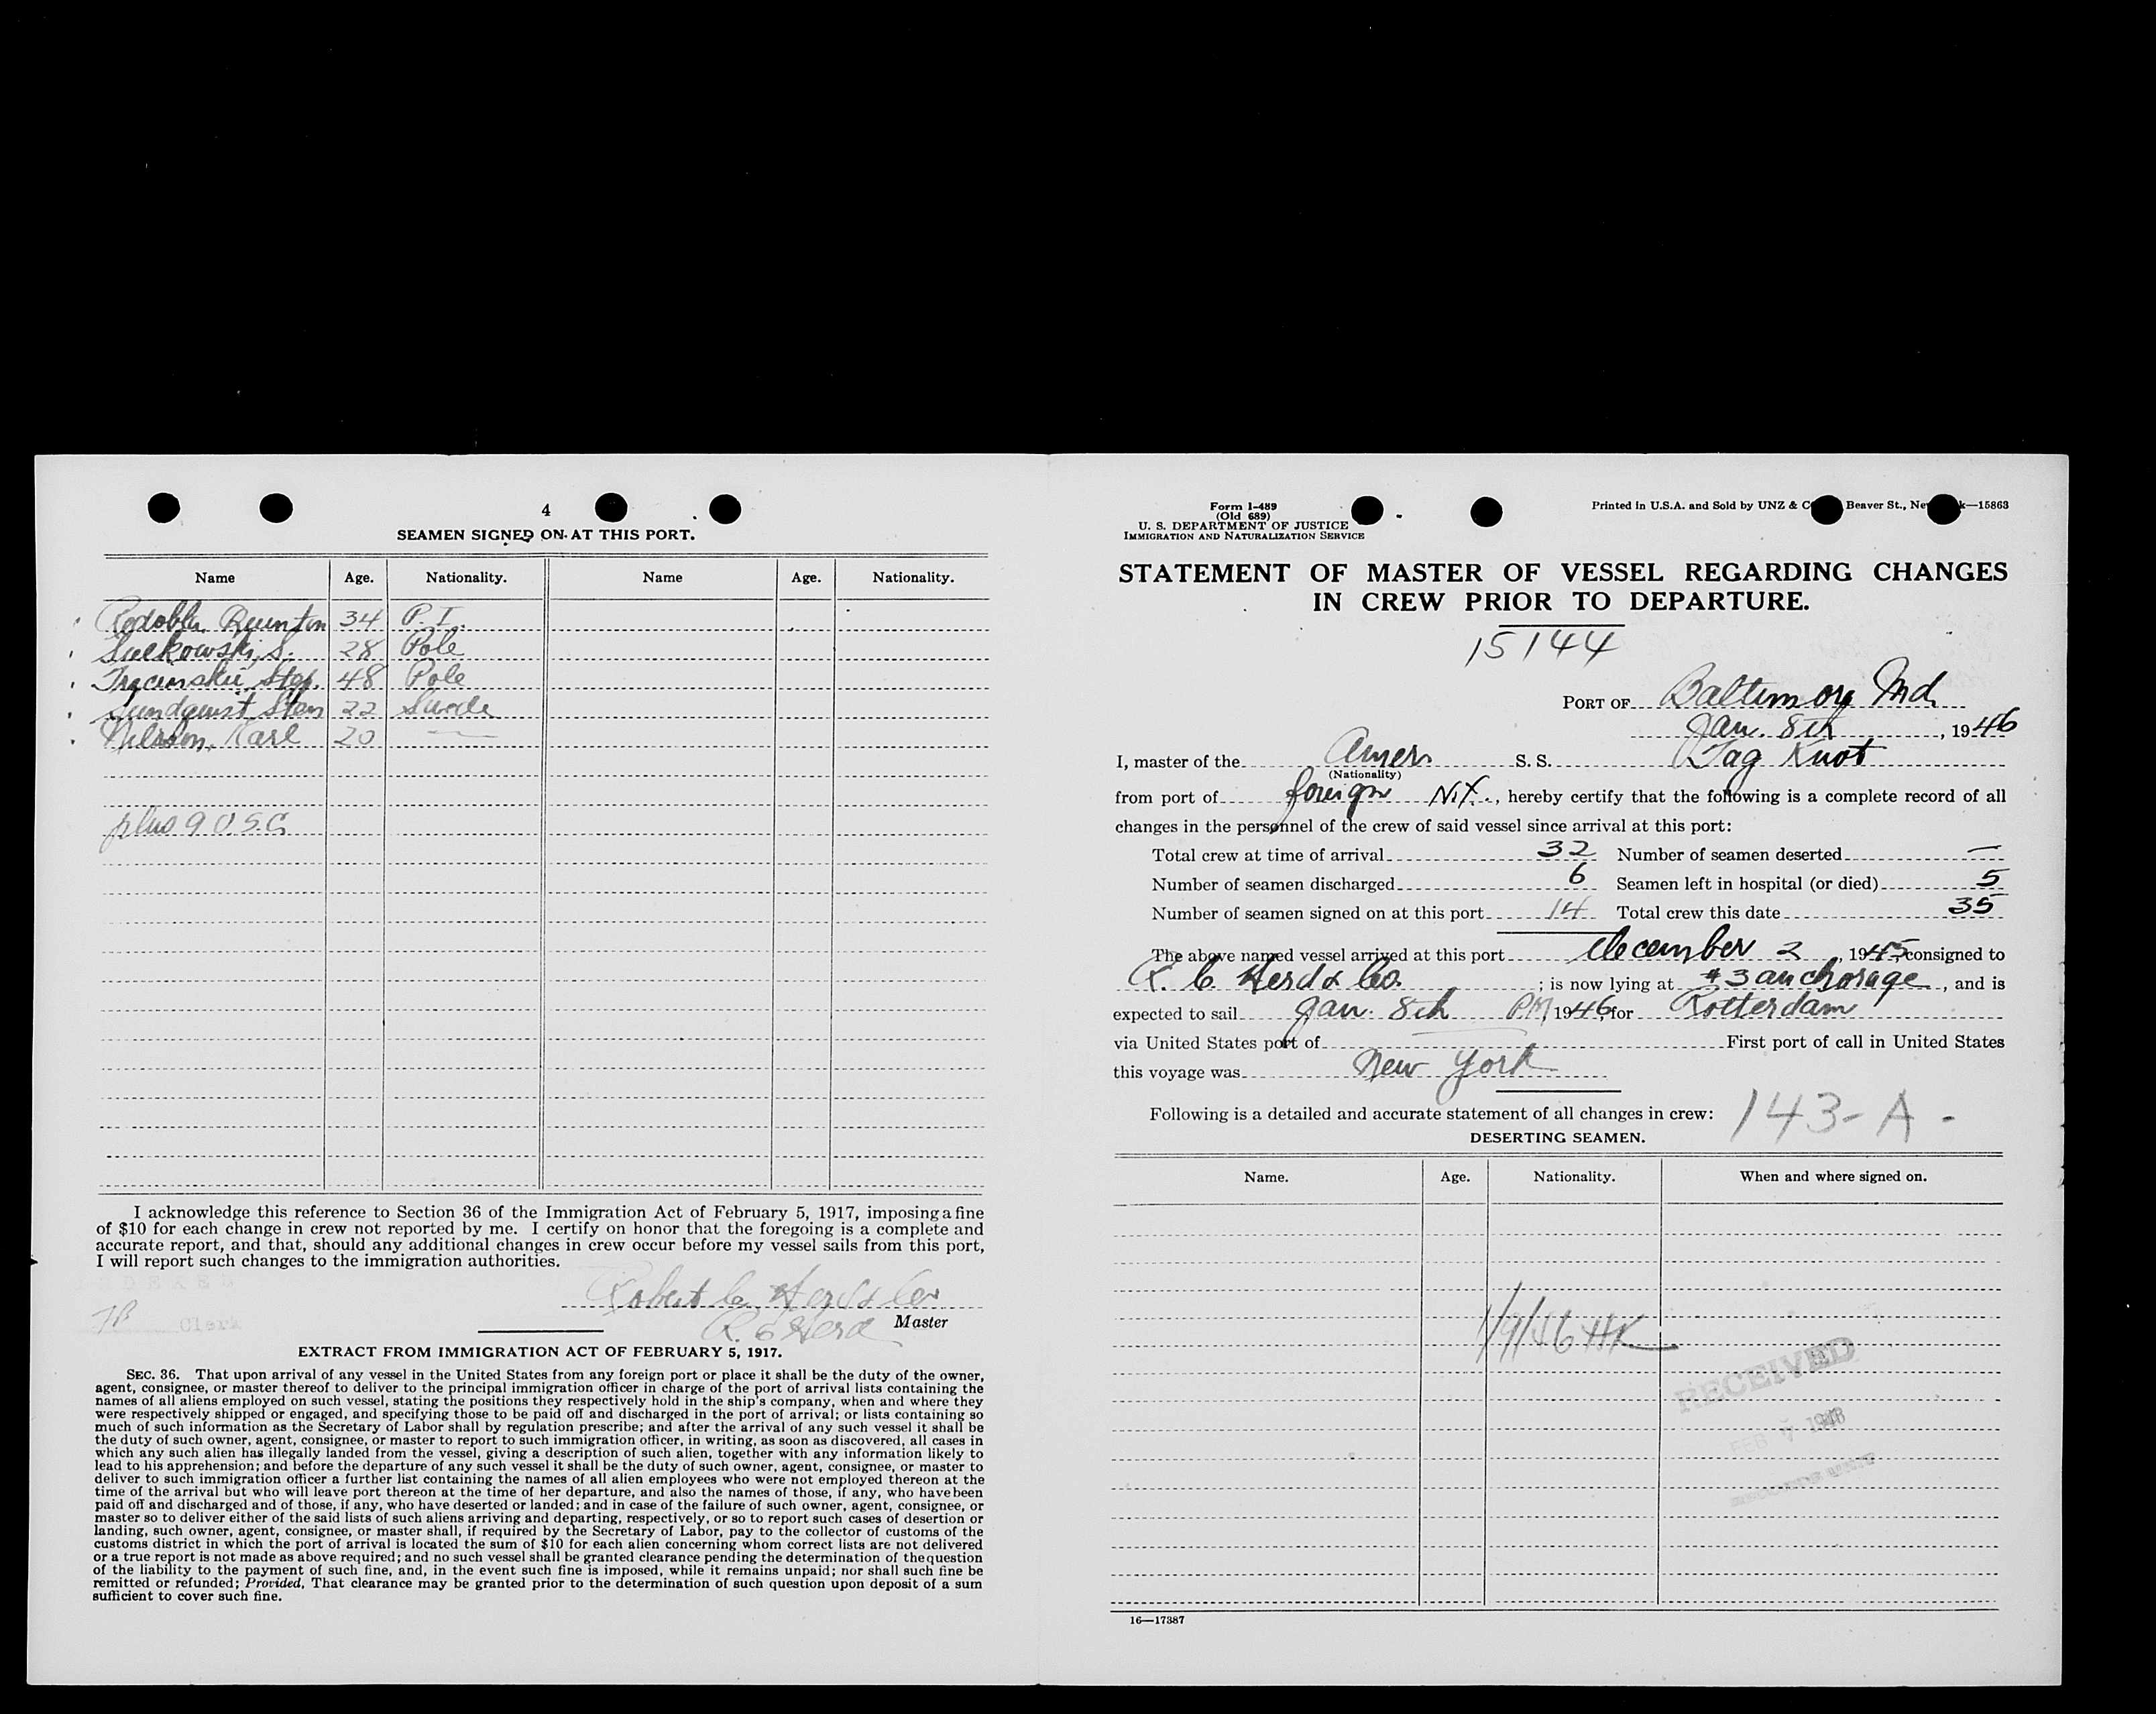 4
SEAMEN SIGNED ON AT THIS PORT.
Name Age. Nationality. Name Age. Nationality.
34 P. I.
Sulkowski, S. 28 Pole
48 Pole
Sundquist, Sten 22 Swede
Nilsson, Karl 20 —
plus 9 U.S.C.
I acknowledge this reference to Section 36 of the Immigration Act of February 5, 1917, imposing a fine
of $10 for each change in crew not reported by me. I certify on honor that the foregoing is a complete and
accurate report, and that, should any additional changes in crew occur before my vessel sails from this port,
I will report such changes to the immigration authorities.
Robert C Herd & Co
Clerk
R. C Herd Master
EXTRACT FROM IMMIGRATION ACT OF FEBRUARY 5, 1917.
SEC. 36. That upon arrival of any vessel in the United States from any foreign port or place it shall be the duty of the owner,
agent, consignee, or master thereof to deliver to the principal immigration officer in charge of the port of arrival lists containing the
names of all aliens employed on such vessel, stating the positions they respectively hold in the ship's company, when and where they
were respectively shipped or engaged, and specifying those to be paid off and discharged in the port of arrival; or lists containing so
much of such information as the Secretary of Labor shall by regulation prescribe; and after the arrival of any such vessel it shall be
the duty of such owner, agent, consignee, or master to report to such immigration officer, in writing, as soon as discovered, all cases in
which any such alien has illegally landed from the vessel, giving a description of such alien, together with any information likely to
lead to his apprehension; and before the departure of any such vessel it shall be the duty of such owner, agent, consignee, or master to
deliver to such immigration officer a further list containing the names of all alien employees who were not employed thereon at the
time of the arrival but who will leave port thereon at the time of her departure, and also the names of those, if any, who have been
paid off and discharged and of those, if any, who have deserted or landed; and in case of the failure of such owner, agent, consignee, or
master so to deliver either of the said lists of such aliens arriving and departing, respectively, or so to report such cases of desertion or
landing, such owner, agent, consignee, or master shall, if required by the Secretary of Labor, pay to the collector of customs of the
customs district in which the port of arrival is located the sum of $10 for each alien concerning whom correct lists are not delivered
or a true report is not made as above required; and no such vessel shall be granted clearance pending the determination of the question
of the liability to the payment of such fine, and, in the event such fine is imposed, while it remains unpaid; nor shall such fine be
remitted or refunded; Provided, That clearance may be granted prior to the determination of such question upon deposit of a sum
sufficient to cover such fine.
Form I-489
(Old 689)
U. S. DEPARTMENT OF JUSTICE
IMMIGRATION AND NATURALIZATION SERVICE
Printed in U.S.A. and Sold by UNZ & C Beaver St., Ne k—15863
STATEMENT OF MASTER OF VESSEL REGARDING CHANGES
IN CREW PRIOR TO DEPARTURE.
15144
PORT OF Baltimore Md.
Jan. 8th, 1946
I, master of the Amer. S. S. Tag Knot
(Nationality)
from port of foreign N.Y., hereby certify that the following is a complete record of all
changes in the personnel of the crew of said vessel since arrival at this port:
Total crew at time of arrival 32 Number of seamen deserted —
Number of seamen discharged 6 Seamen left in hospital (or died) 5
Number of seamen signed on at this port 14 Total crew this date 35
The above named vessel arrived at this port December 2, 1945, consigned to
R. C. Herd & Co. ; is now lying at #3 anchorage, and is
expected to sail Jan. 8th PM, 1946, for Rotterdam
via United States port of First port of call in United States
this voyage was New York
Following is a detailed and accurate statement of all changes in crew: 143-A-
DESERTING SEAMEN.
Name. Age. Nationality. When and where signed on.
1/9/46 HK
RECEIVED
FEB 1946
16—17387